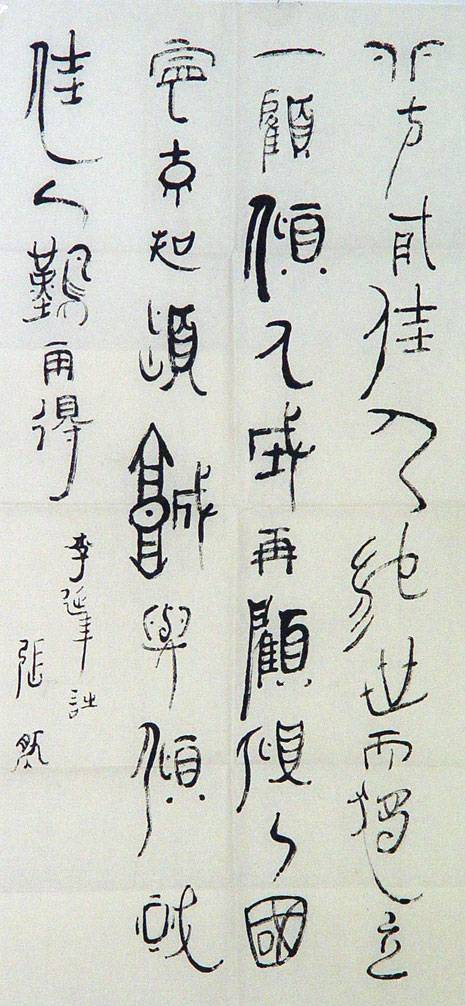 北方有佳人絕世而獨立
一顧傾人城再顧傾人國
寧不知傾城與傾國
佳人難再得
李延年詩
張